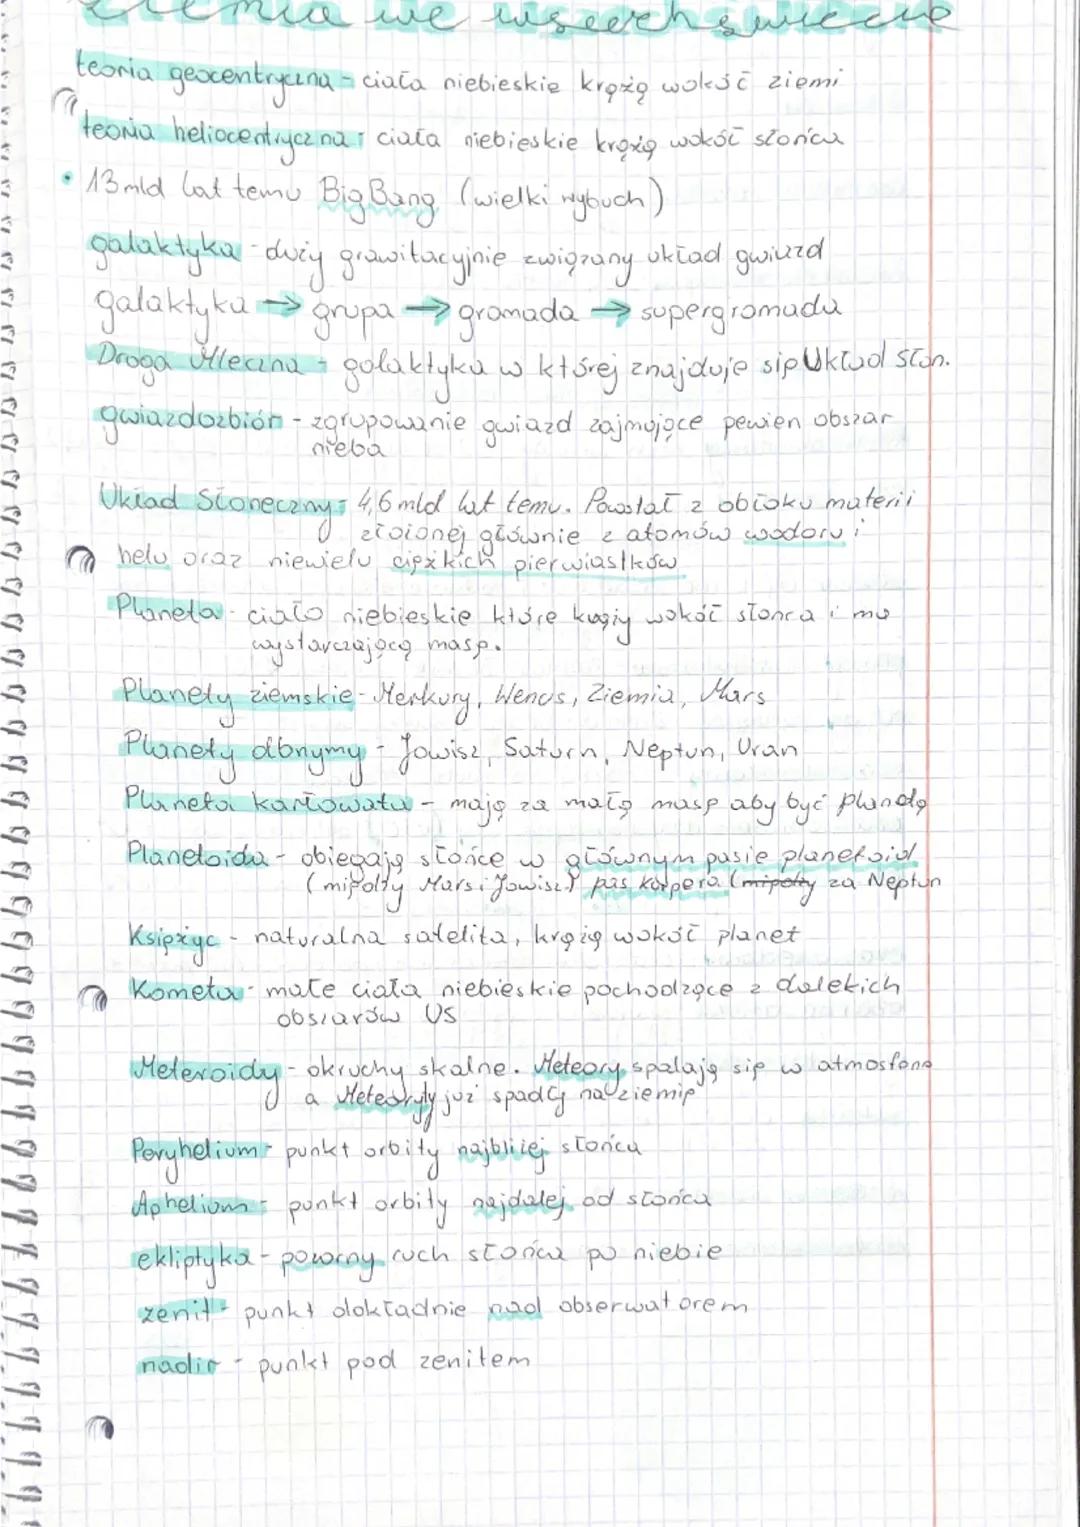 Ziemia we wszechświecie
teoria geocentryczna - ciała niebieskie krążą wokół ziemi
teoria heliocentryczna - ciała niebieskie krążą wokół słońca
• 13 mld lat temu Big Bang (wielki wybuch)
galaktyka - duży grawitacyjnie związany układ gwiazd
galaktyka → grupa → gromada → supergromada
Droga Mleczna - galaktyka w której znajduje się Układ słon.
gwiazdozbiór - zgrupowanie gwiazd zajmujące pewien obszar
nieba
Układ Słoneczny - 4,6 mld lat temu. Powstał z obłoku materii
złożonej głównie z atomów wodoru i
helu oraz niewielu ciężkich pierwiastków
Planeta - ciało niebieskie które krąży wokół słońca i ma
wystarczającą masę.
Planety ziemskie - Merkury, Wenus, Ziemia, Mars
Planety olbrzymy - Jowisz, Saturn, Neptun, Uran
Planeta karłowata - mają za małą masę aby być planetą
Planetoida - obiegają słońce w głównym pasie planetoid
(między Mars i Jowisz) pas kuipera (między za Neptun
Księżyc - naturalna satelita, krążą wokół planet
Kometa - małe ciała niebieskie pochodzące z dalekich
obszarów US
Meteroidy - okruchy skalne. Meteory spalają się w atmosferę
a Meteoryty już spadły na ziemię
Peryhelium - punkt orbity najbliżej słońca
Aphelium - punkt orbity najdalej od słońca
ekliptyka - pozorny ruch słońca po niebie
zenit - punkt dokładnie nad obserwatorem
nadir - punkt pod zenitem